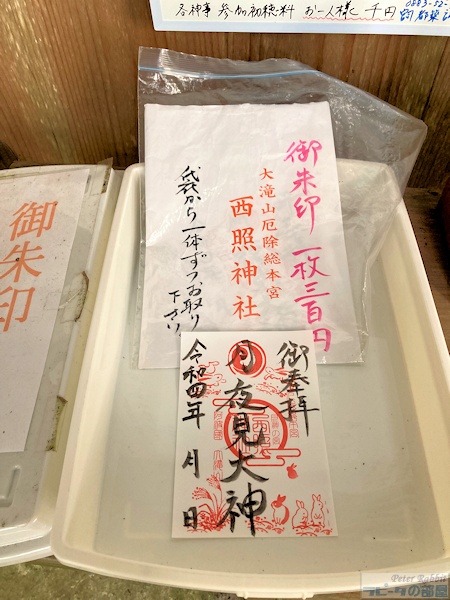 各神事 参加初穂料 お一人様 千円
御朱印 一枚三百円
大滝山厄除総本宮
西照神社
袋から一体ずつお取り
下さい
御朱印
御奉拝
月夜見大神
令和四年 月 日
Peter Rabbit
ラビータの部屋